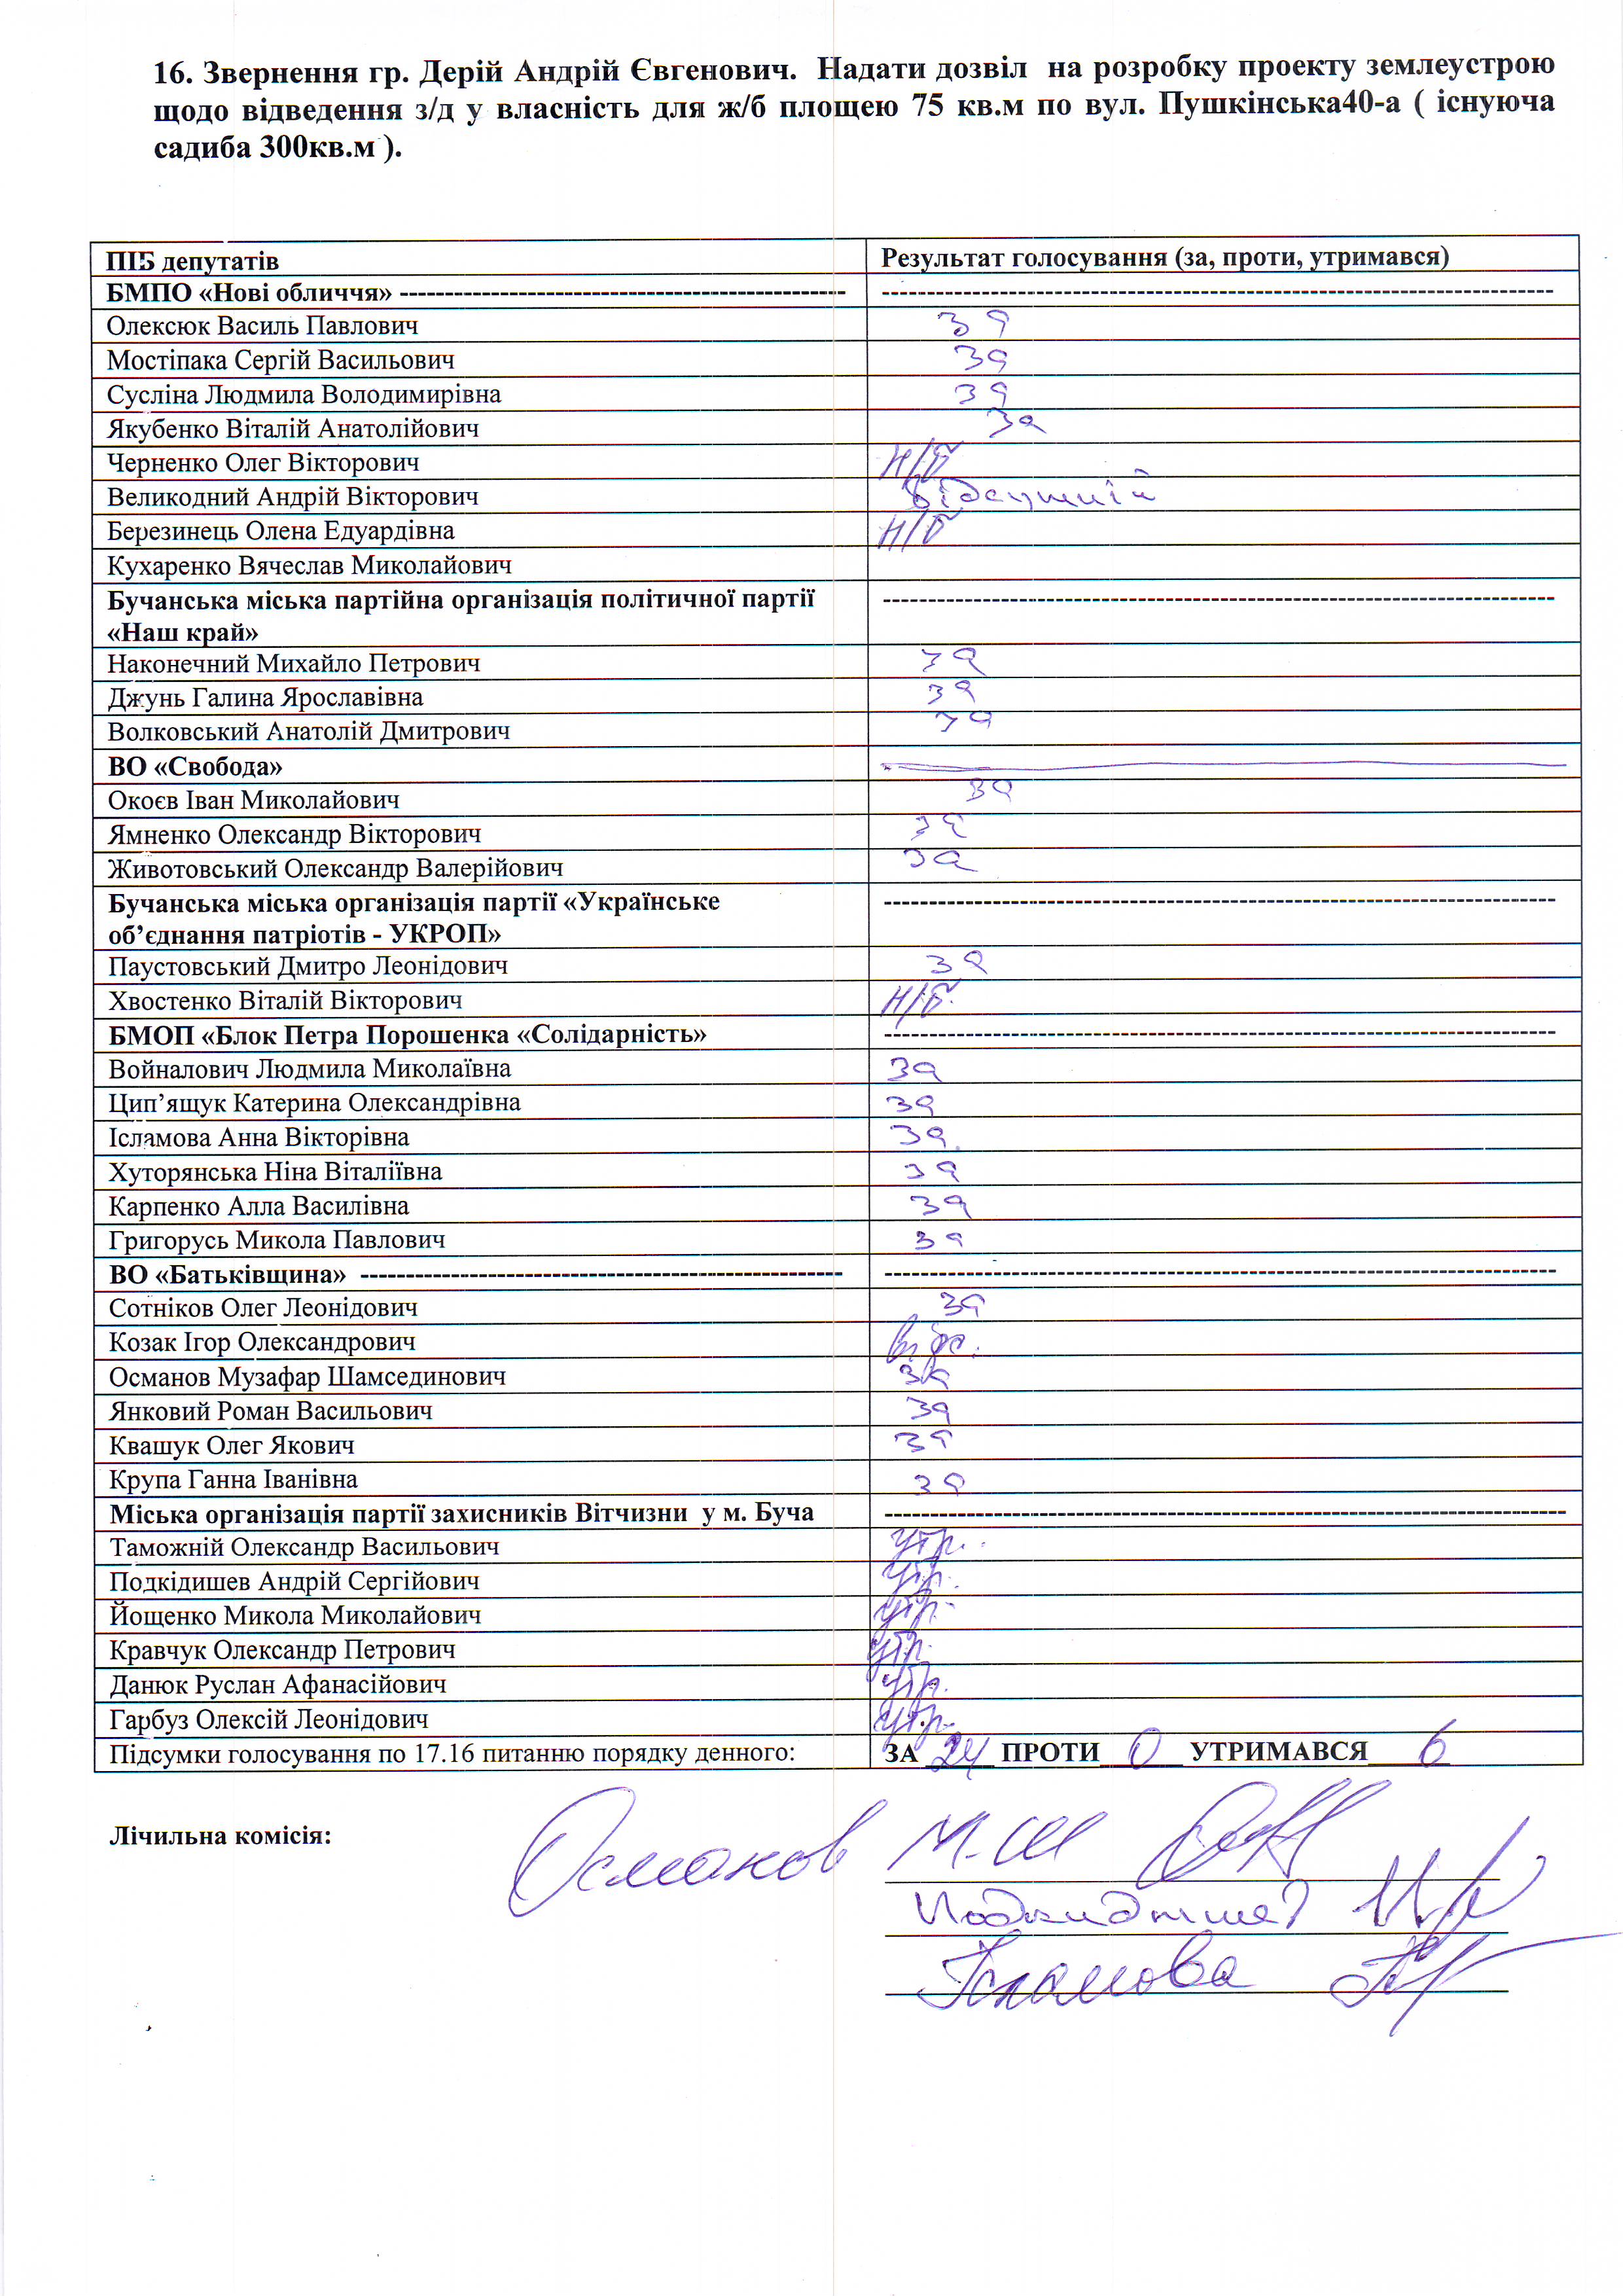 16. Звернення гр. Дерій Андрій Євгенович. Надати дозвіл на розробку проекту землеустрою
щодо відведення з/д у власність для ж/б площею 75 кв.м по вул. Пушкінська40-а ( існуюча
садиба 300кв.м ).
ПІБ депутатів Результат голосування (за, проти, утримався)
БМПО «Нові обличчя» ------------------------------------------------- --------------------------------------------------------------------------
Олексюк Василь Павлович за
Мостіпака Сергій Васильович за
Сусліна Людмила Володимирівна за
Якубенко Віталій Анатолійович за
Черненко Олег Вікторович н/б
Великодний Андрій Вікторович відсутній
Березинець Олена Едуардівна н/б
Кухаренко Вячеслав Миколайович
Бучанська міська партійна організація політичної партії --------------------------------------------------------------------------
«Наш край»
Наконечний Михайло Петрович за
Джунь Галина Ярославівна за
Волковський Анатолій Дмитрович за
ВО «Свобода»
Окоєв Іван Миколайович за
Ямненко Олександр Вікторович за
Животовський Олександр Валерійович за
Бучанська міська організація партії «Українське --------------------------------------------------------------------------
об’єднання патріотів - УКРОП»
Паустовський Дмитро Леонідович за
Хвостенко Віталій Вікторович н/б.
БМОП «Блок Петра Порошенка «Солідарність» --------------------------------------------------------------------------
Войналович Людмила Миколаївна за
Цип’ящук Катерина Олександрівна за
Ісламова Анна Вікторівна за.
Хуторянська Ніна Віталіївна за
Карпенко Алла Василівна за
Григорусь Микола Павлович за
ВО «Батьківщина» ----------------------------------------------------- --------------------------------------------------------------------------
Сотніков Олег Леонідович за
Козак Ігор Олександрович
Османов Музафар Шамсединович за
Янковий Роман Васильович за
Квашук Олег Якович за
Крупа Ганна Іванівна за
Міська організація партії захисників Вітчизни у м. Буча ---------------------------------------------------------------------------
Таможній Олександр Васильович утр.
Подкідишев Андрій Сергійович утр.
Йощенко Микола Миколайович утр.
Кравчук Олександр Петрович утр.
Данюк Руслан Афанасійович утр.
Гарбуз Олексій Леонідович утр.
Підсумки голосування по 17.16 питанню порядку денного: ЗА 24 ПРОТИ 0 УТРИМАВСЯ 6
Лічильна комісія: Османов М.Ш
Ісламова